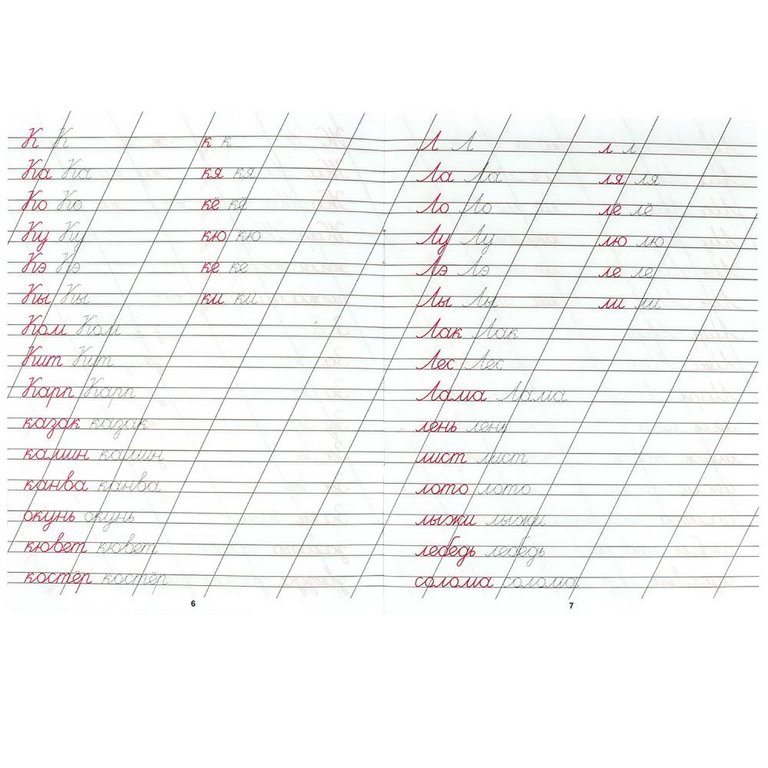 К К к к
Ка Ка кя кя
Ко Ко кё кё
Ку Ку кю кю
Кэ Кэ ке ке
Кы Кы ки ки
Ком Ком
Кит Кит
Карп Карп
казак казак
камин камин
канва канва
окунь окунь
кювет кювет
костёр костёр
6
Л Л л л
Ла Ла ля ля
Ло Ло лё лё
Лу Лу лю лю
Лэ Лэ ле ле
Лы Лы ли ли
Лак Лак
Лес Лес
Лама Лама
лень лень
лист лист
лото лото
лыжи лыжи
лебедь лебедь
солома солома
7